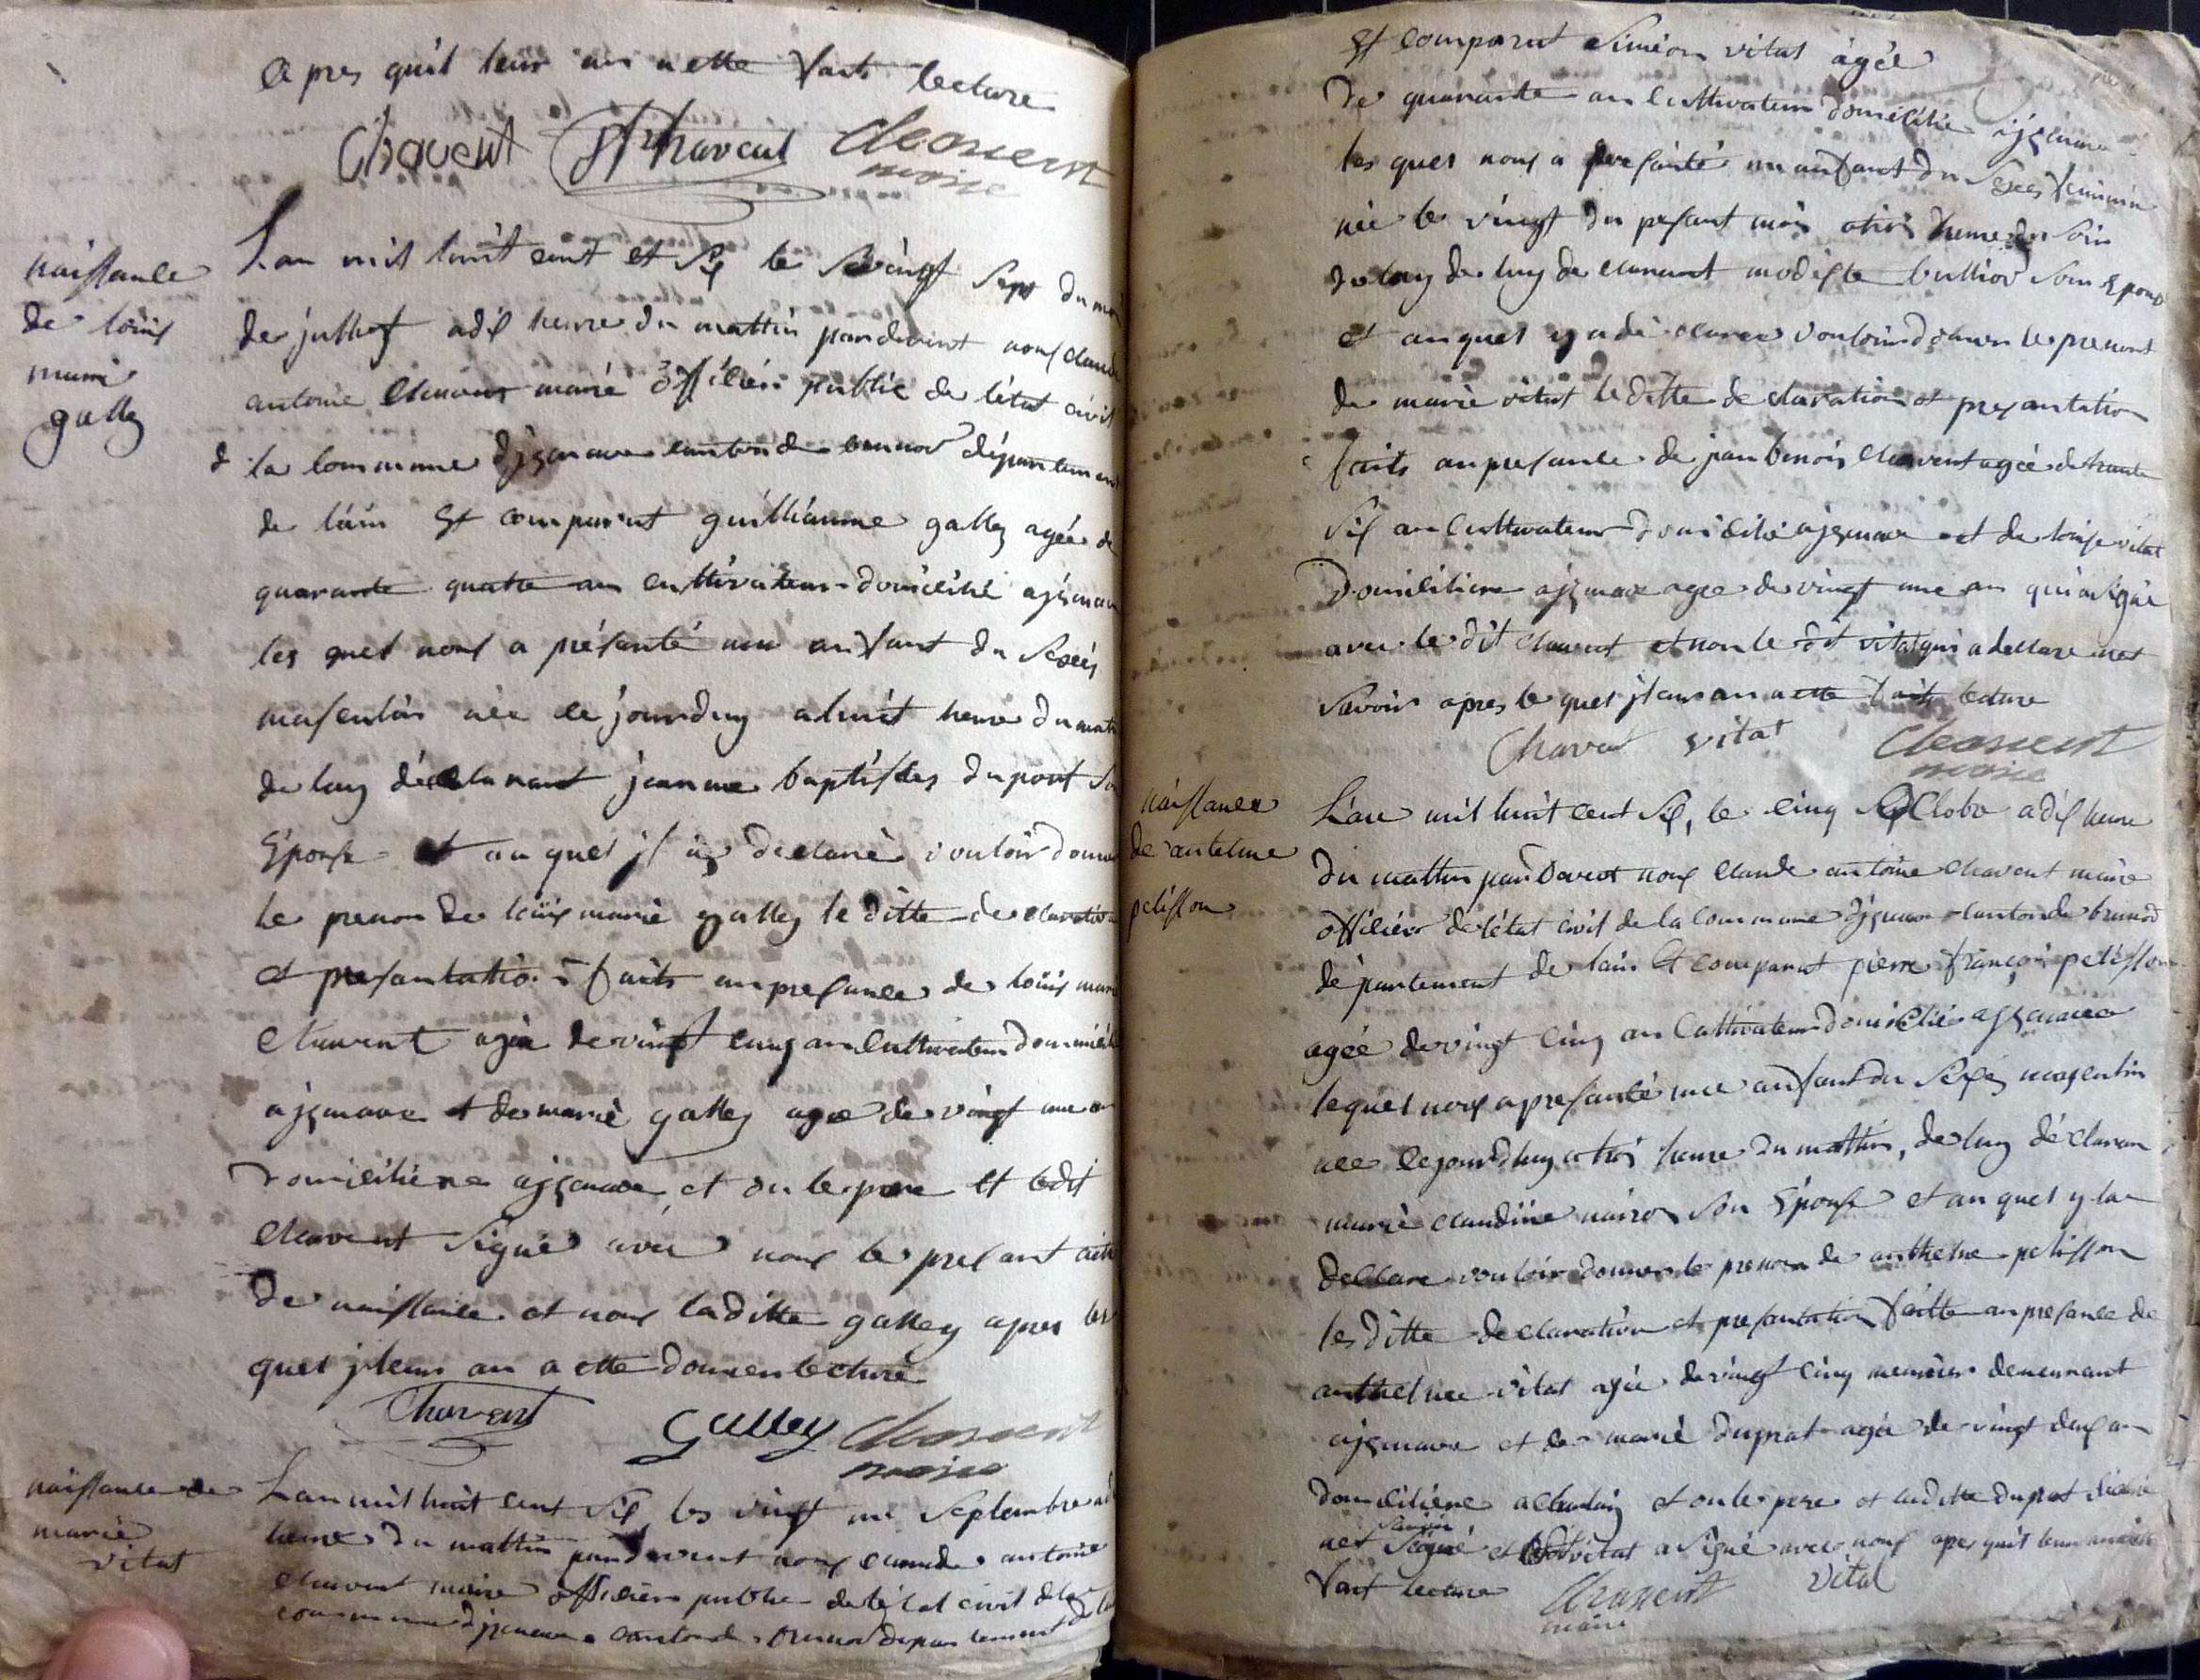 a pres quil leur an a ette fait lecture
Chavent Chavent Chavent
maire
naissance
de loüis
marie
galley
L'an mil huit cent et six le vingt sept du moi
de jullet a dix heure du mattin pardevent nous claude
antoine chavent maire officier public de l'état civil
d la commune d'jzenave canton de brenod département
de l'ain Est comparut guilliaume galley agée de
quarante quatre an cultivateur domicilié a jzenave
les quel nous a présanté un anfant du sexes
masculin née ce jourduy a huit heure du matt
de luy déclarant jeanne baptistes dupont son
Epouse et au quel jl a declaré vouloir donner
le prenon de loüis marie galley le ditte declaration
et presantation faits an presance de loüis marie
chavent agée de vingt cinq an cultivateur domicilié
a jzenave et de marie galley agee de vingt une an
domiciliere a jzenave et on le pere et ledit
chavent signé avec nous le presant acte
de naissance et nons laditte galley apres les
quel jl leur an a ette donner lecture
Chavent Galley Chavent
maire
naissance de
marie
vitat
L'an mil huit cent six les vingt un septembre a dix
heure du mattin pardevent nous claude antoine
chavent maire officier public de l'état civil de la
commune d'jzenave canton de brenod departement de l'ain
Et comparut Siméon vitat agée
de quarante an cultivateur domicilié a jzenave
les quel nous a presanté un anfant du sexes feminin
née le vingt du presant mois a trois heure du soir
de luy declarant modeste bulliod son Epouse
et au quel y a declarer vouloir donner le prenont
de marie vitat le ditte declaration et presantation
faits an presance de jean benois chavent agée de trante
six an cultivateur domicilié a jzenave et de loise vitat
domiciliere a jzenave agee de vingt une an qui a signé
avec le dit chavent et non le dit vitat qui a dellare net
savoir apres le quel jl leur an a ette fait lecture
Chavent vitat Chavent
maire
naissance
de antelme
pelisson
L'an mil huit cent six, le cinq octobre a dix heure
du mattin pardevent nous claude antoine chavent maire
officier de l'état civil de la commune d'jzenave canton de brenod
département de l'ain Et comparut pierre françoi pelisson
agée de vingt cinq an cultivateur domicilié a jzenave
lequel nous a presanté une anfant du sexes masculin
née cejourdhuy a trois heure du mattin, de luy déclaran
marie claudine nairon son Epouse et au quel y la
dellare vouloir donner le prenon de anthelme pelisson
les ditte declaration et presantation faitte an presance de
anthelme vitat agée de vingt cinq menuier demeurant
a jzenave et de marie duprat agée de vingt deux an
domiciliére a et on le pere et laditte duprat
net savoir signé et vitat a signé avec nous apres quil leur an a ette
fait lecture Chavent vital
maire